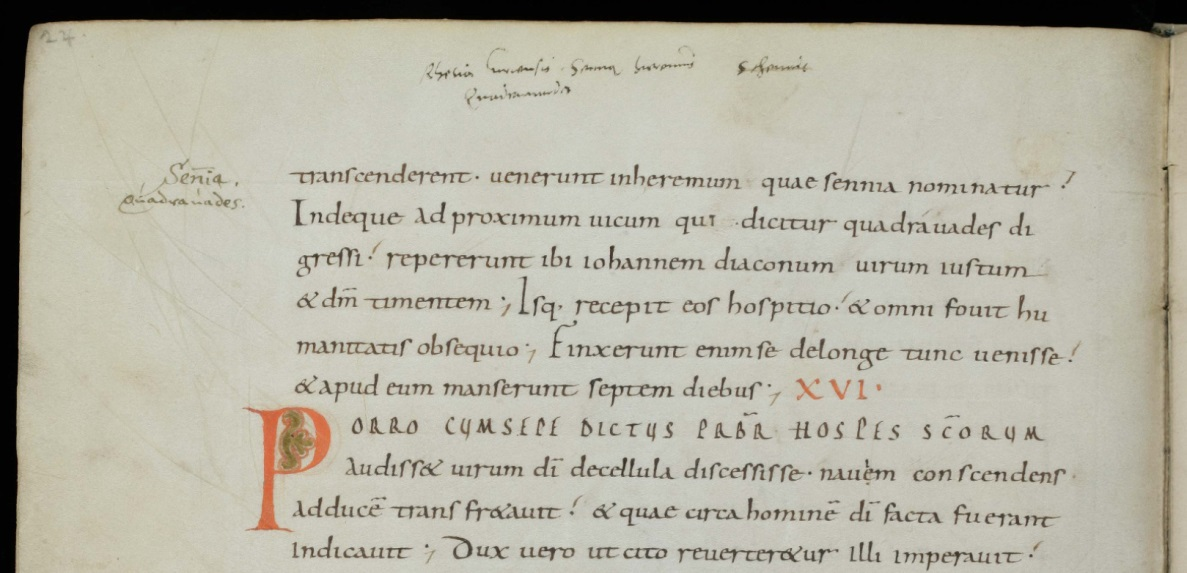 24.
Quadrauades
Senia.
Quadrauades.
transcenderent· uenerunt inheremum quae sennia nominatur
Indeque ad proximum uicum qui dicitur quadráuades di
gressi· repererunt ibi iohannem diaconum uirum iustum
& dm̄ timentem; Isq; recepit eos hospitio· & omni fouit hu
manitatis obsequio; Finxerunt enim se delonge tunc uenisse·
& apud eum manserunt septem diebus; XVI·
PORRO CUMSEPE DICTUS PRB̄R HOSPES SC̄ORUM
Audiss& uirum dī decellula discessisse· nauem conscendens·
adducē transfr&auit· & quae circa hominē dī facta fuerant
indicauit; Dux uero ut cito reuerter&ur illi imperauit·